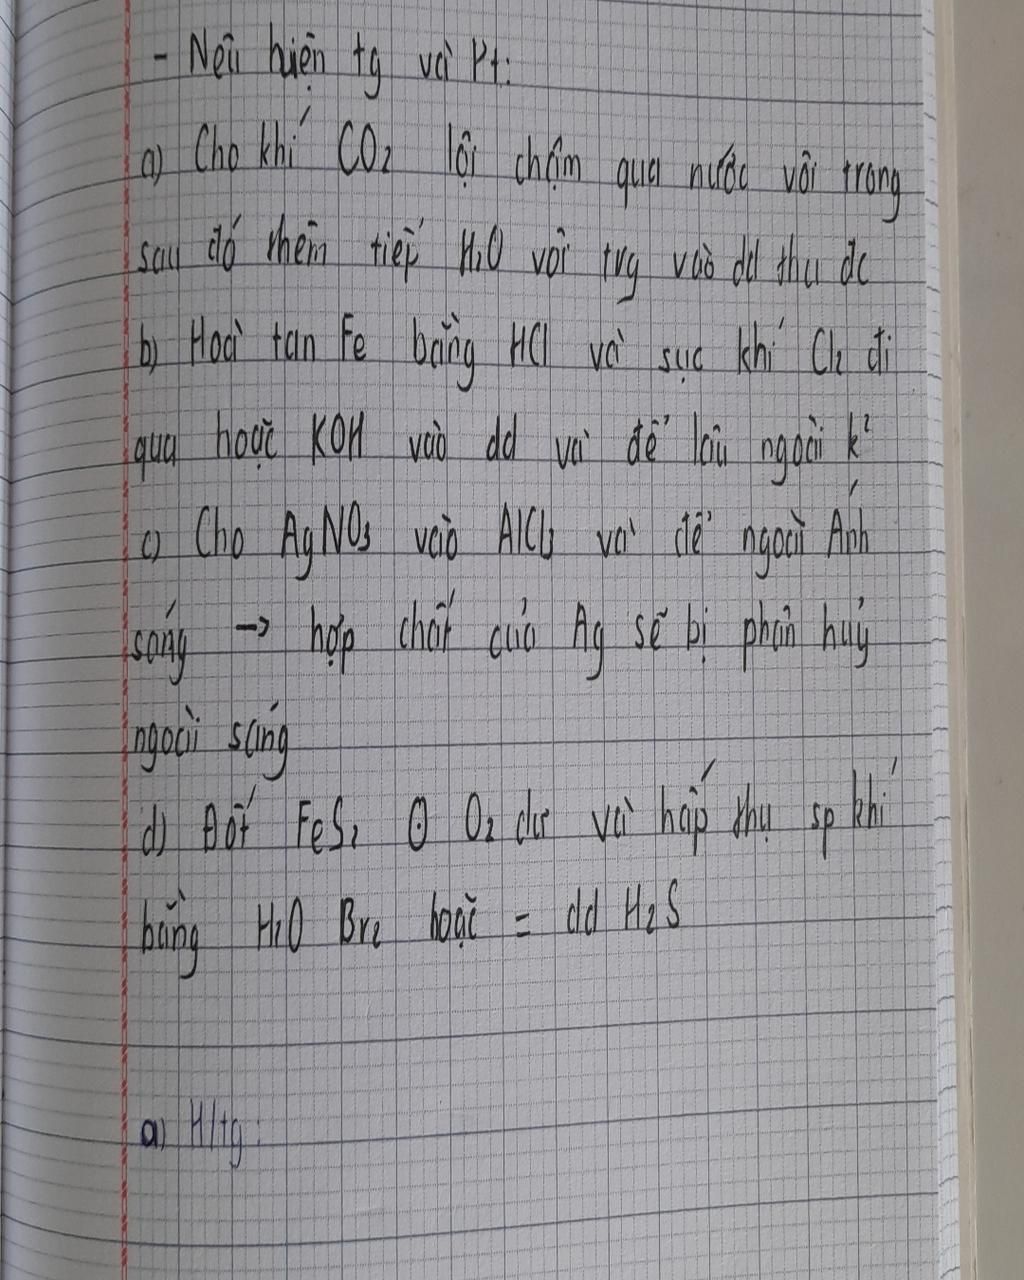 - Nêu hiện tg và Pt:
a) Cho khí CO2 lội chậm qua nước vôi trong
sau đó thêm tiếp H2O vôi trg vào dd thu đc
b) Hoà tan Fe bằng HCl và sục khí Cl2 đi
qua hoặc KOH vào dd và để lâu ngoài k²
c) Cho AgNO3 vào AlCl3 và để ngoài Ánh
sáng → hợp chất của Ag sẽ bị phân huỷ
ngoài sáng
d) Đốt FeS2 O2 dư và hấp thụ sp khí
bằng H2O Br2 hoặc = dd H2S
a) H/tg: